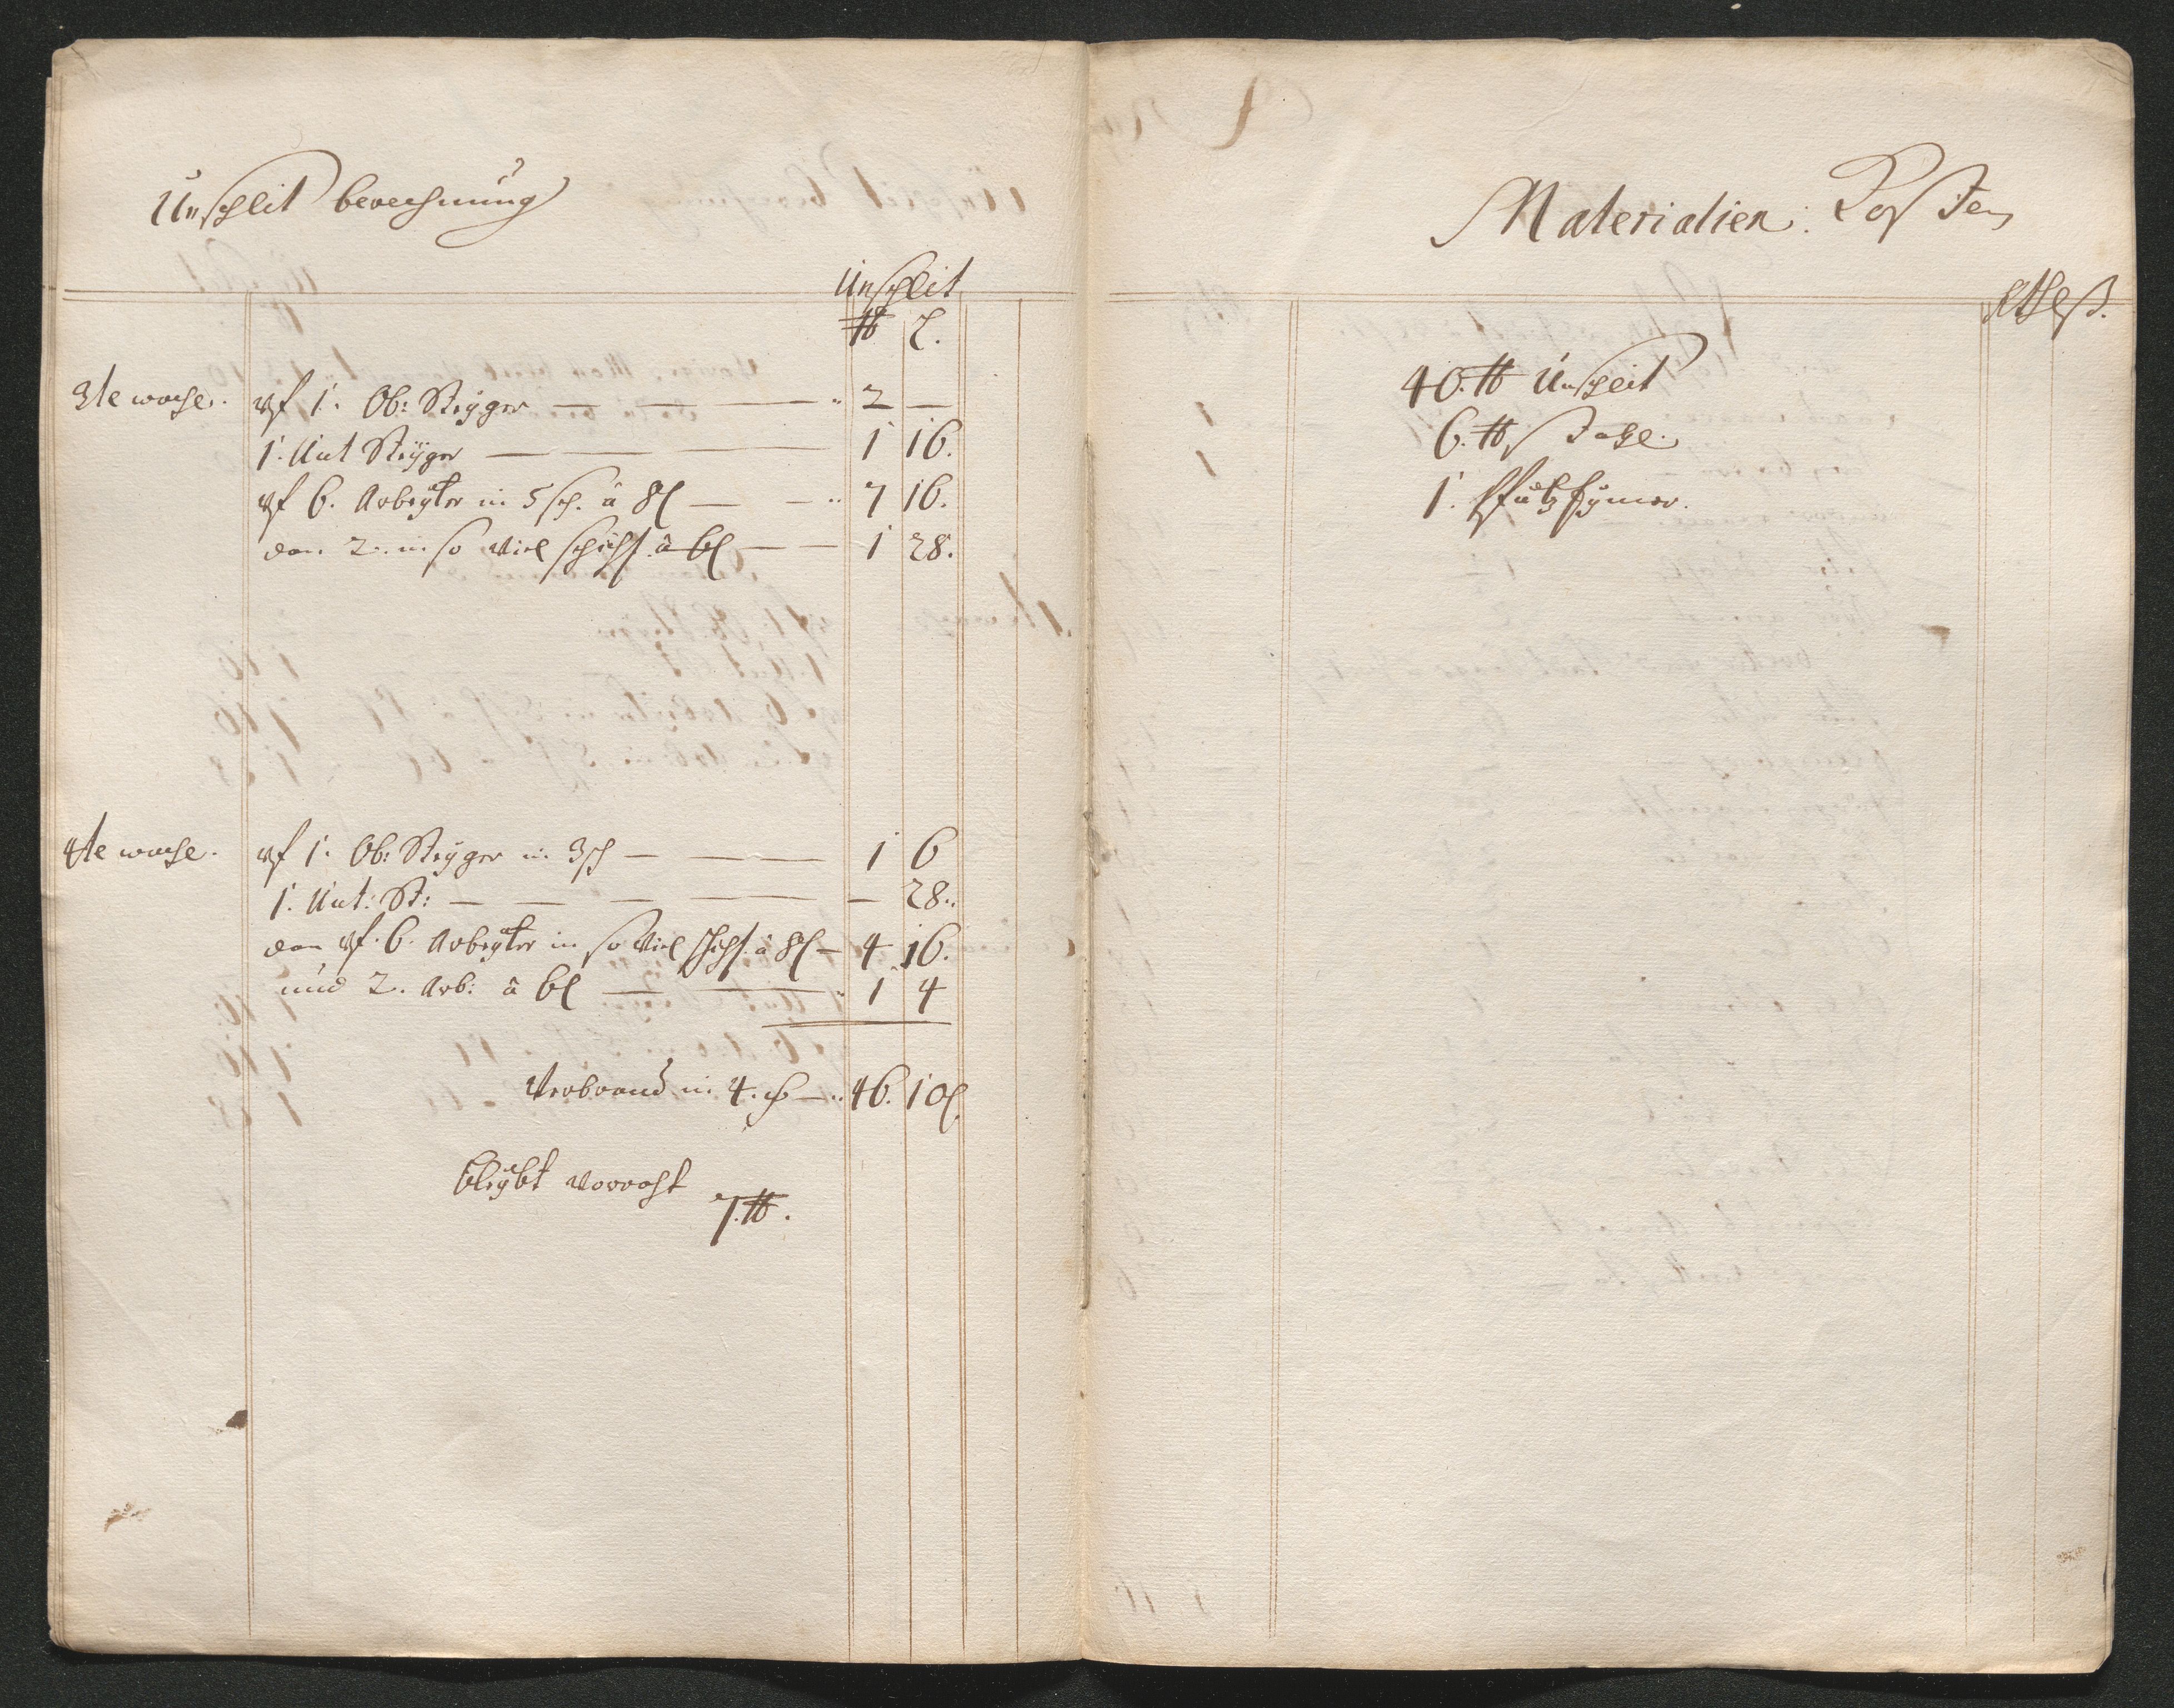 Unschlit berechnung
Unschlit
℔ L.
3te woche. vf 1. Ob: Steyger — — — 2 —
1. Unt Steyger — — — 1 16.
vf 6. Arbeyter in 5 sch. â 8 l — — 7 16.
dan 2. in so viel schicht. â 6 l — — 1 28.
4te woche. vf 1. Ob: Steyger in 3 sch — — — 1 6
1. Unt: St: — — — — — 28.
dan vf. 6. Arbeyter in so viel schicht. â 8 l — 4 16.
und 2. Arb: â 6 l — — 1 4
Verbrand in 4. — 46. 10 l
bleybt vorraht
7. ℔.
Materialien: Costen
40. ℔ Unschlit
6. ℔ Stahl.
1.